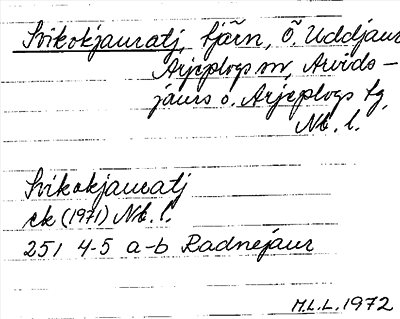 Svikokjauratj, tjärn, Ö. Uddjaur
Arjeplogs sn, Arvids-
jaurs o. Arjeplogs tg
Nb. l.
Svikokjauratj
ek (1971) Nb. l.
25I 4-5 a-b Radnejaur
M.L.L. 1972